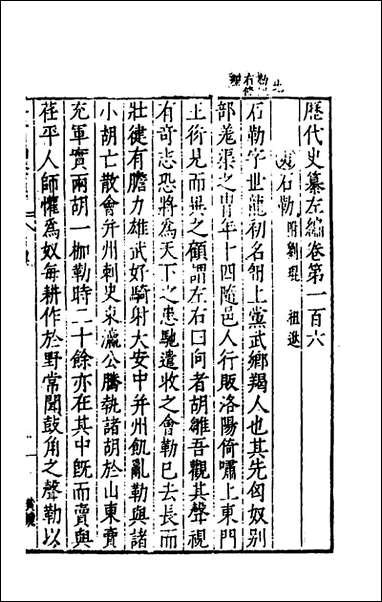 歷代史纂左編卷第一百六
石勒 附劉琨 祖逖
石勒字世龍初名㔨上黨武鄉羯人也其先匈奴别
部羌渠之胄年十四隨邑人行販洛陽倚嘯上東門
王衍見而異之顧謂左右曰向者胡雛吾觀其聲視
有奇志恐將為天下之患馳遣收之會勒已去長而
壯徤有膽力雄武好騎射大安中并州飢亂勒與諸
小胡亡散會并州刺史東瀛公騰執諸胡於山東賣
充軍實兩胡一枷勒時二十餘亦在其中旣而賣與
茌平人師懽為奴每耕作於野常聞鼓角之聲勒以